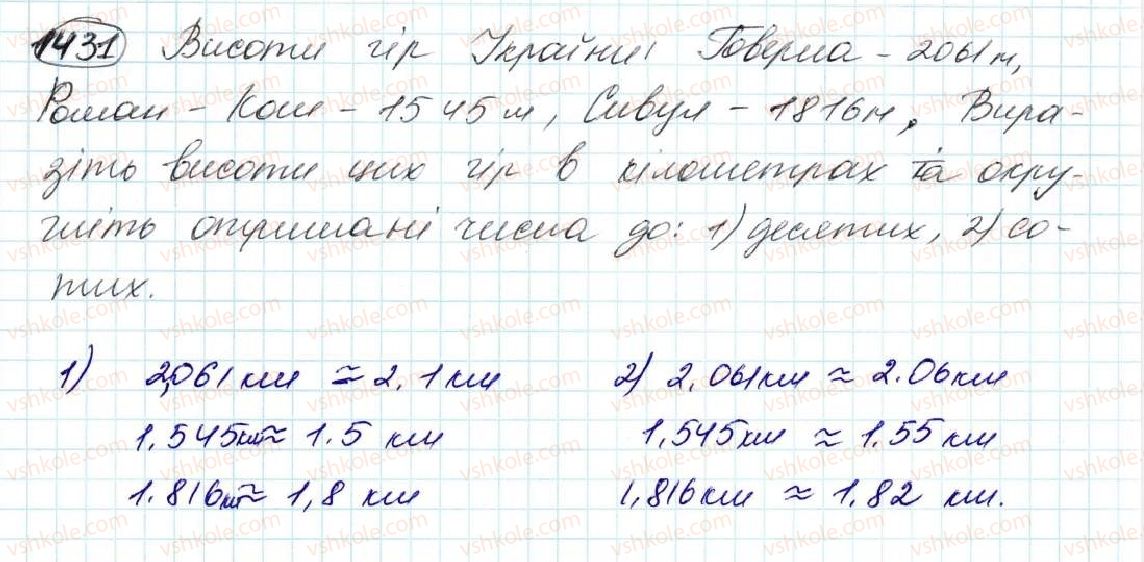 1431 Висоти гір України: Говерла - 2061 м,
Роман - Кош - 1545 м, Сивуля - 1816 м. Вира-
зіть висоти цих гір в кілометрах та окру-
гліть отримані числа до: 1) десятих, 2) со-
тих.
1) 2,061 км ≈ 2.1 км 2) 2.061 км ≈ 2.06 км
1.545 км ≈ 1.5 км 1,545 км ≈ 1.55 км
1.816 км ≈ 1,8 км 1,816 км ≈ 1,82 км.
vshkole.com